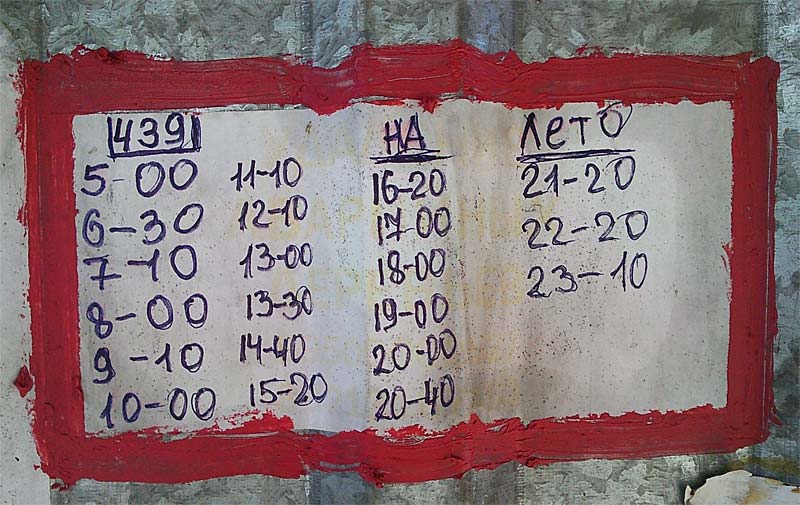 439 НА ЛЕТО
5-00 11-10 16-20 21-20
6-30 12-10 17-00 22-20
7-10 13-00 18-00 23-10
8-00 13-30 19-00
9-10 14-40 20-00
10-00 15-20 20-40